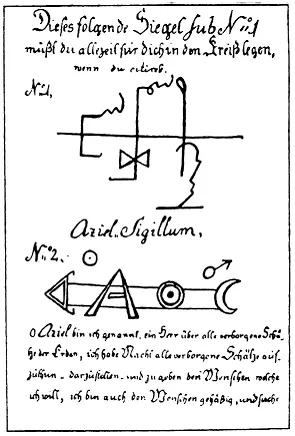 Dieses folgende Siegel sub N:o 1
mußt du allezeit für dich in den Kreiß legen,
wenn du citirest.
N:o 1,
Aziel.. Sigillum,
N:o 2.
A
O Aziel bin ich genannt, ein Herr über alle verborgene Schä-
tze der Erden, ich habe Macht alle verborgene Schätze auf-
zuthun - darzustellen - und zu geben den Menschen welche
ich will, ich bin auch den Menschen gehäßig, und